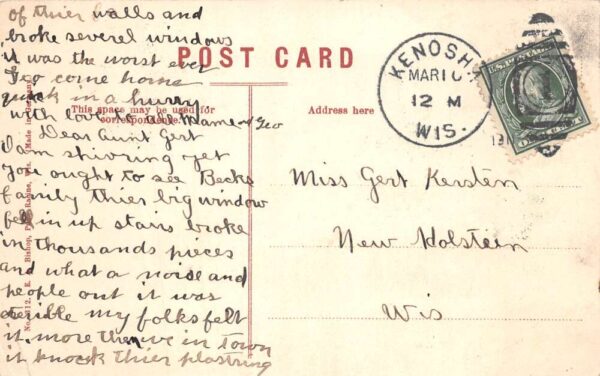 of thier walls and
broke severel windows
it was the worst ever
Geo come home
quick in a hurry
with love to all Mame and Geo
Dear Aunt Gert
I am shivring yet
you ought to see Becks
family thier big window
fell in up stairs broke
in thousands pieces
and what a noise and
people out it was
terible my folks felt
it more then we in town
it knock thier plastring
POST CARD
This space may be used for
correspondence.
Address here
KENOSHA
MAR 10
12 M
WIS.
Miss Gert Kersten
New Holstein
Wis